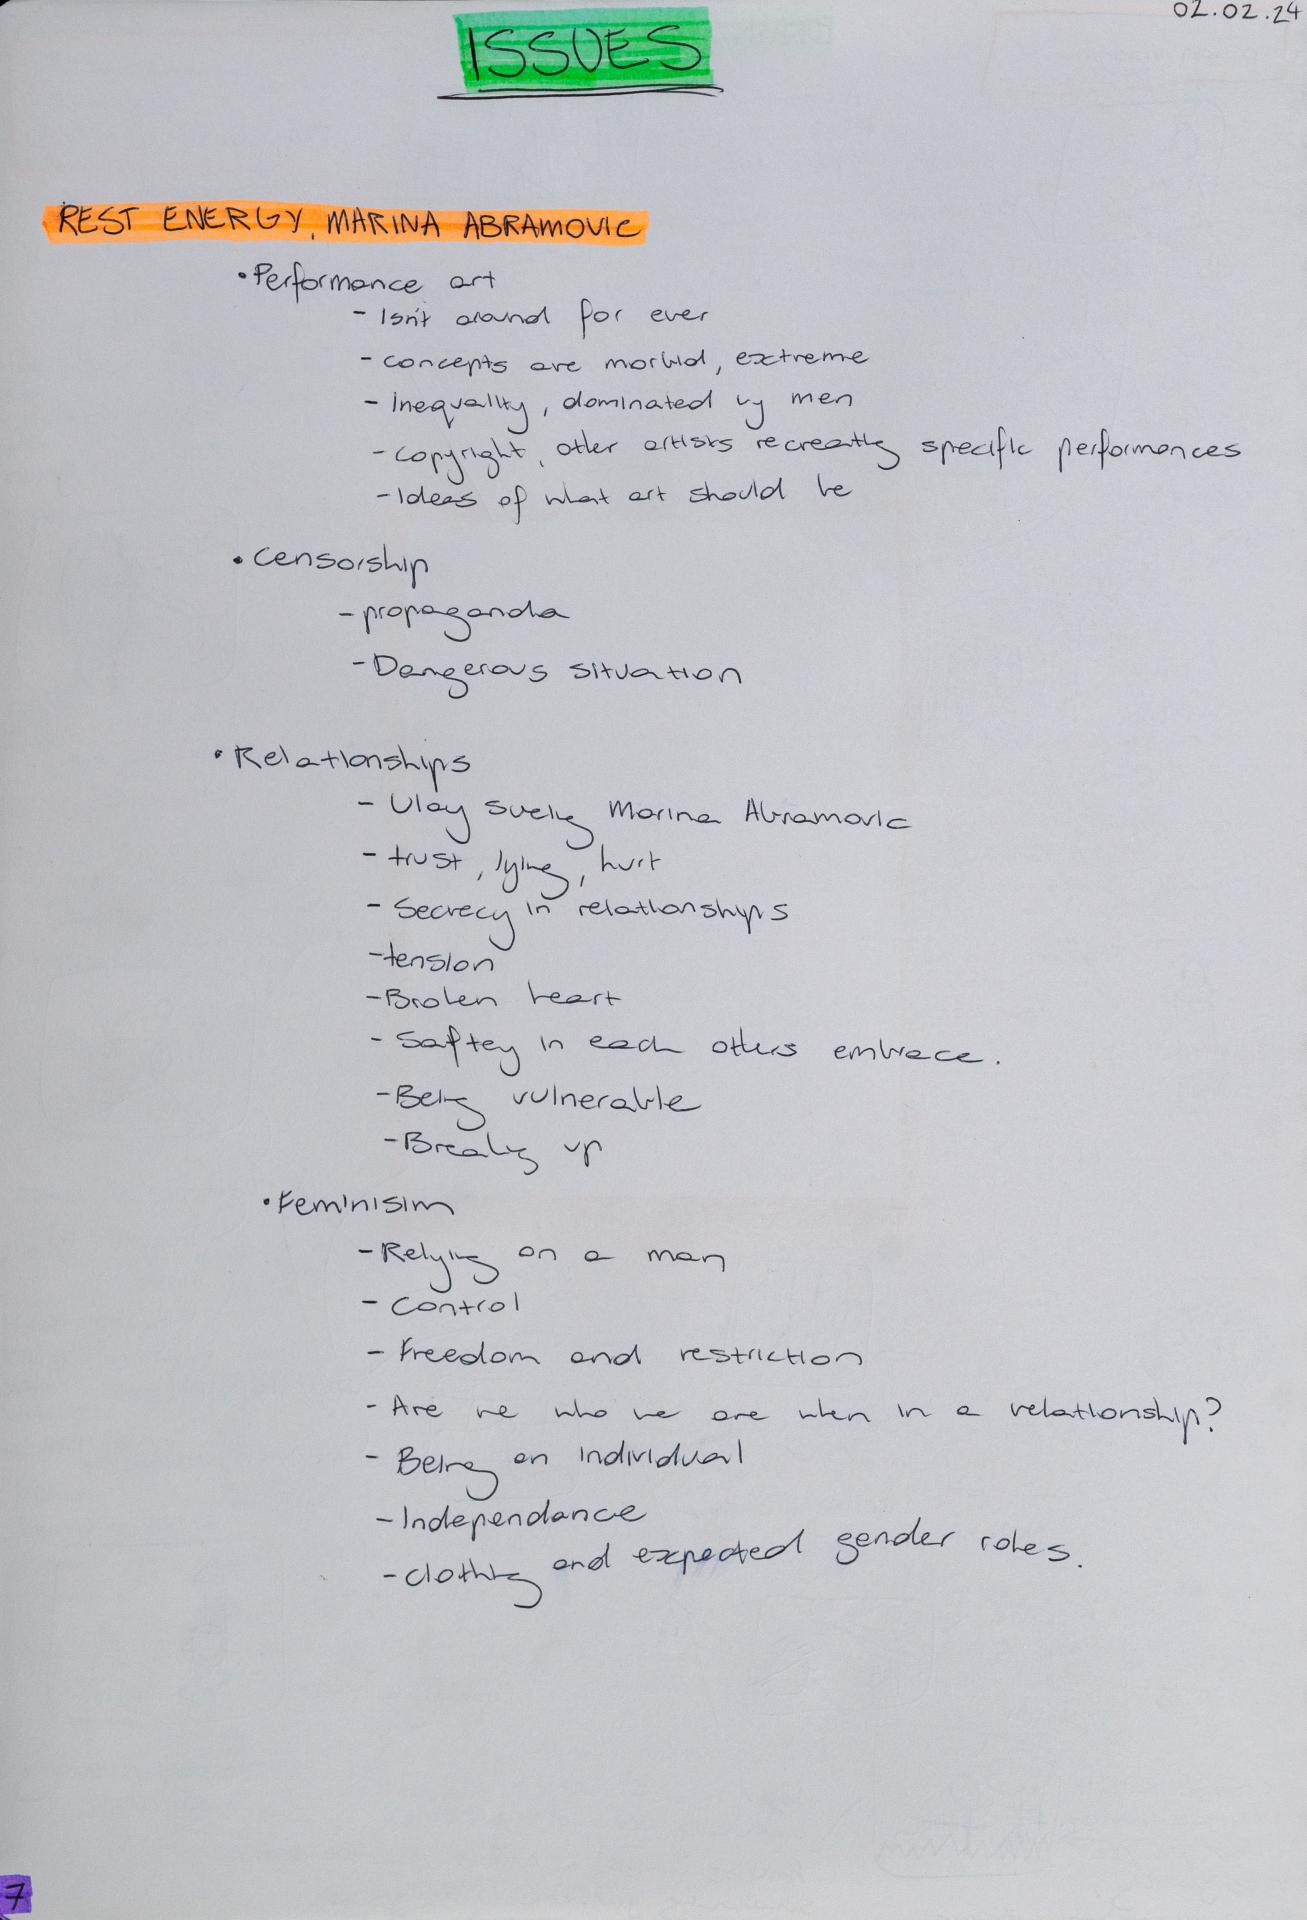 02.02.24
ISSUES
REST ENERGY, MARINA ABRAMOVIC
• Performance art
- Isn't around for ever
- concepts are morbid, extreme
- inequality, dominated by men
- copyright, other artists recreating specific performances
- Ideas of what art should be
• Censorship
- propaganda
- Dangerous situation
• Relationships
- Ulay sueing Marina Abramovic
- trust, lying, hurt
- Secrecy in relationships
- tension
- Broken heart
- Saftey in each others embrace.
- Being vulnerable
- Breaking up
• Feminisim
- Relying on a man
- Control
- Freedom and restriction
- Are we who we are when in a relationship?
- Being an individual
- Independance
- clothing and expected gender roles.
7